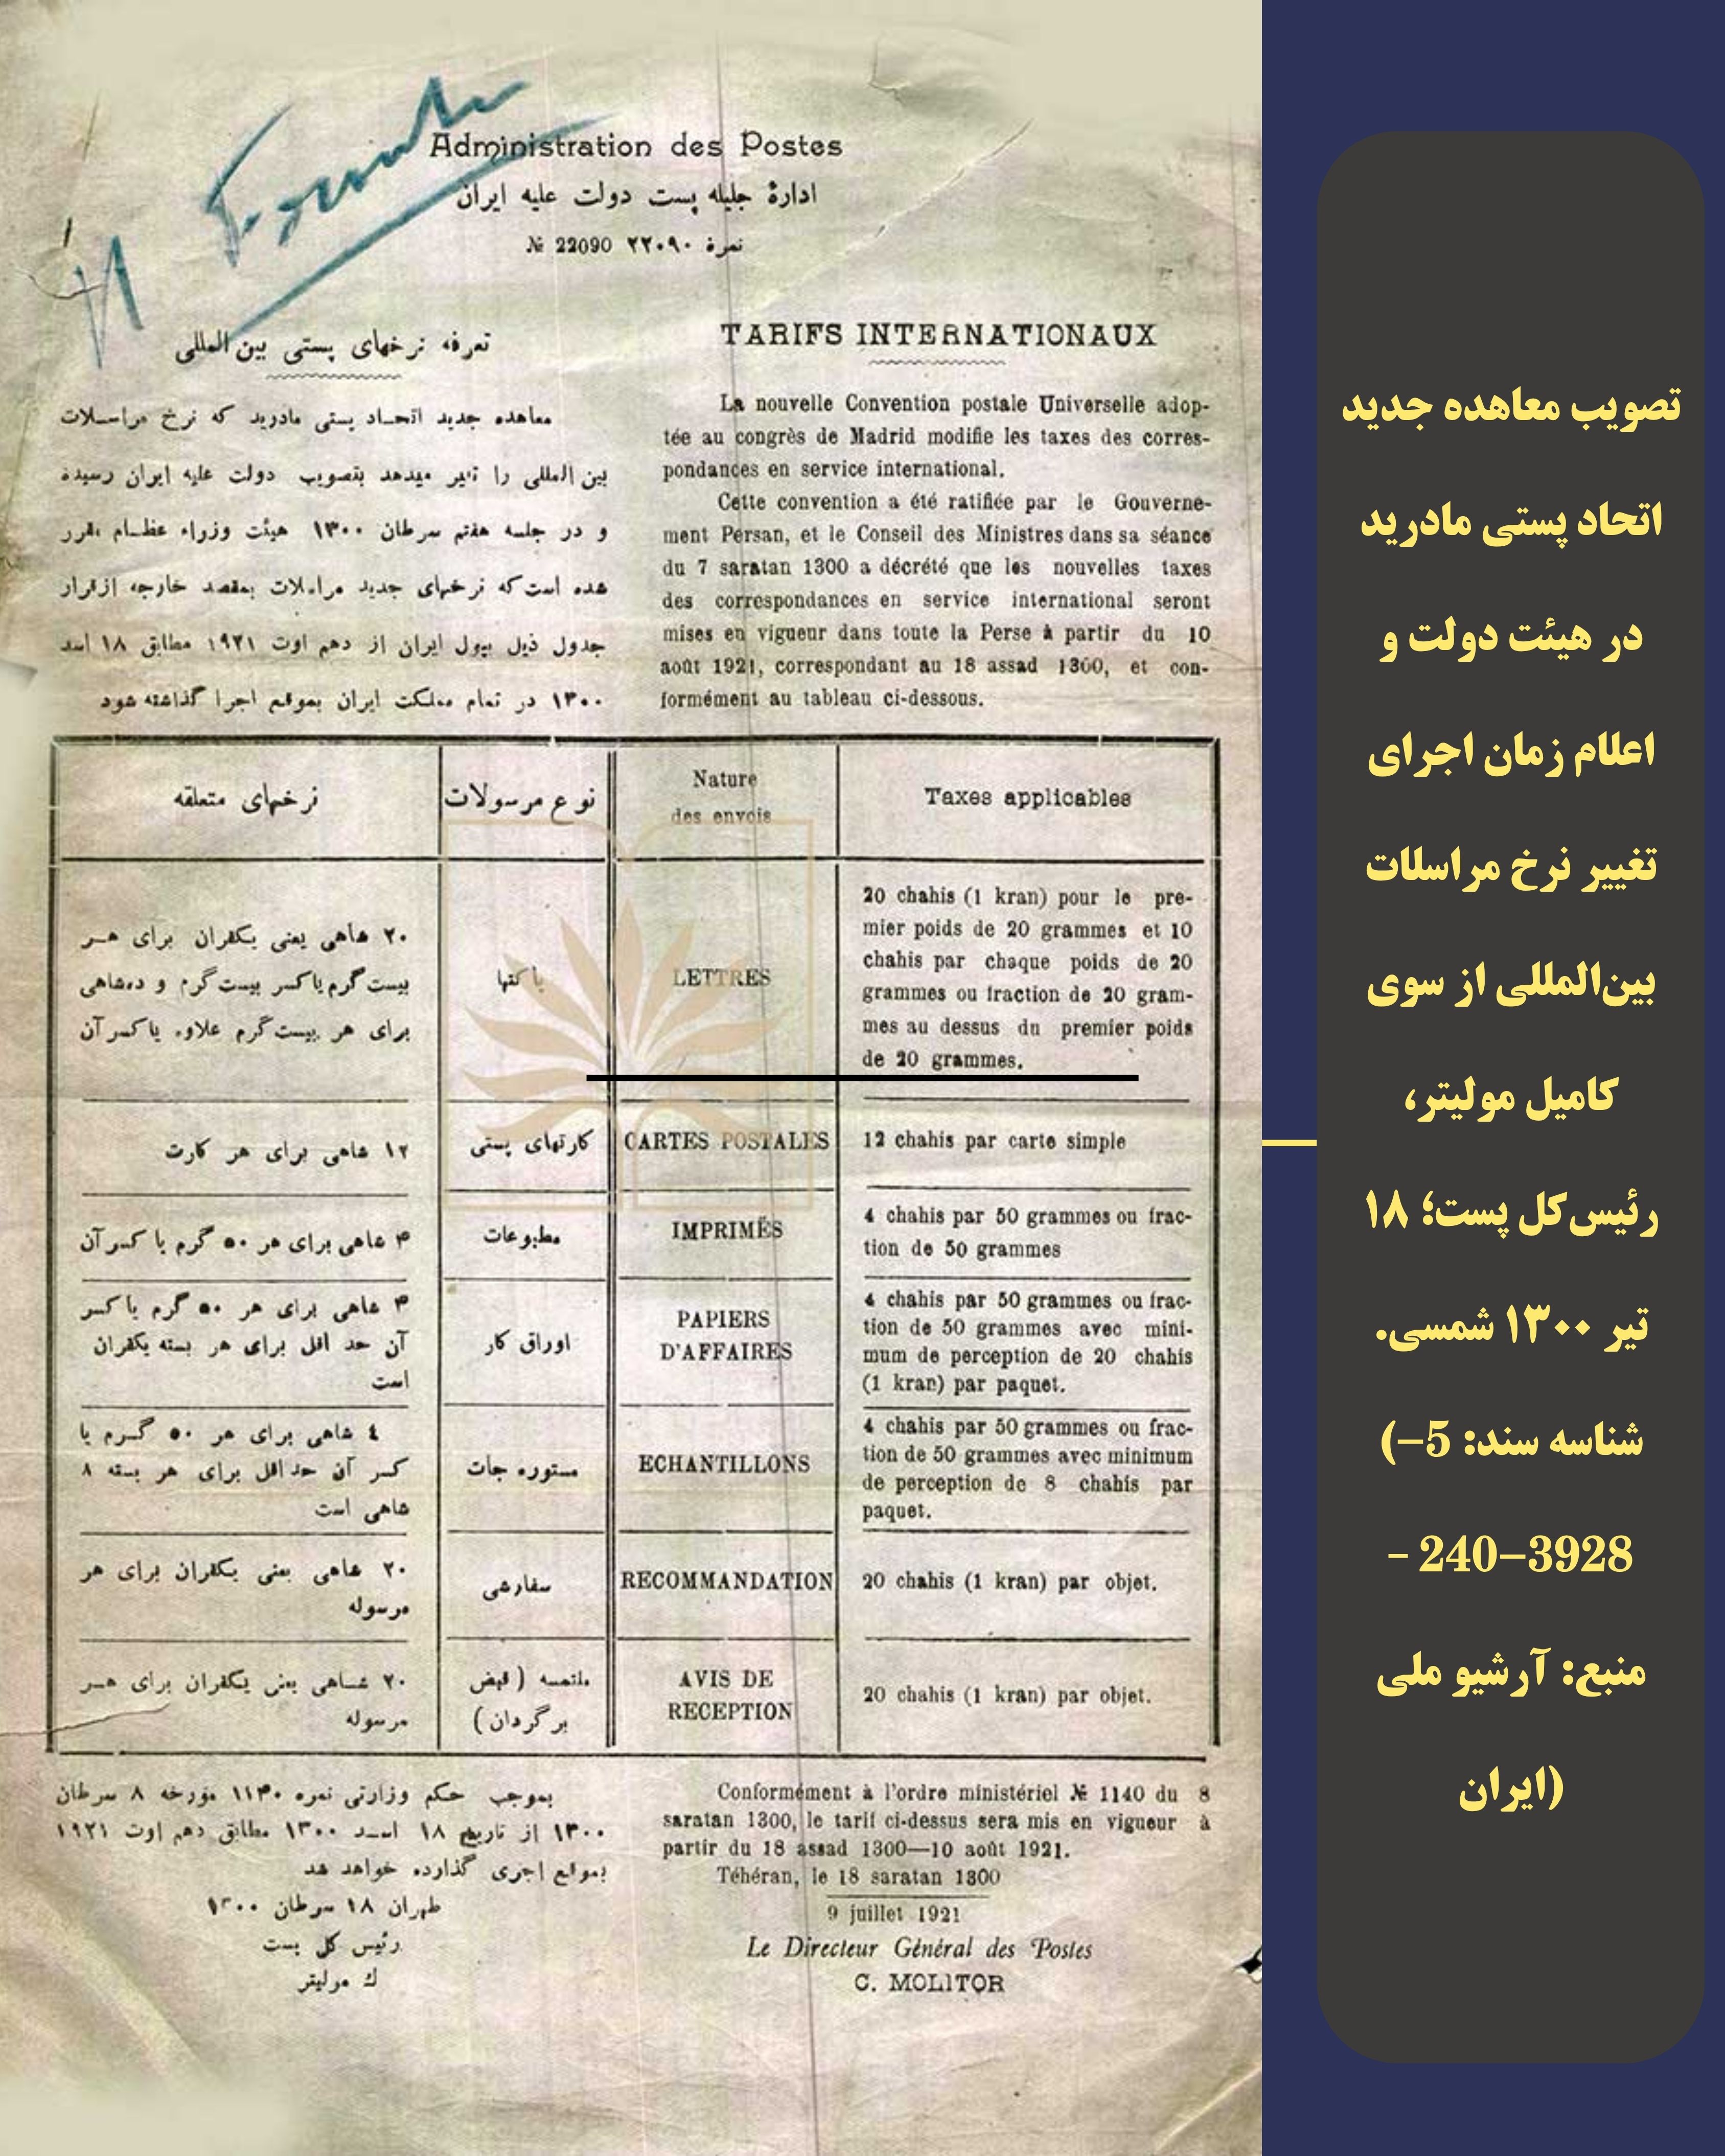 Administration des Postes
ادارهٔ جلیله پست دولت علیه ایران
№ 22090 نمرة ۲۲۰۹۰
TARIFS INTERNATIONAUX
La nouvelle Convention postale Universelle adop-
tée au congrès de Madrid modifie les taxes des corres-
pondances en service international.
Cette convention a été ratifiée par le Gouverne-
ment Persan, et le Conseil des Ministres dans sa séance
du 7 saratan 1300 a décrété que les nouvelles taxes
des correspondances en service international seront
mises en vigueur dans toute la Perse à partir du 10
août 1921, correspondant au 18 assad 1300, et con-
formément au tableau ci-dessous.
تعرفه نرخهای پستی بین المللی
معاهده جدید اتحاد پستی مادرید که نرخ مراسلات
بین المللی را تغیر میدهد بتصویب دولت علیه ایران رسیده
و در جلسه هفتم سرطان ۱۳۰۰ هیئت وزراء عظام مقرر
شده است که نرخهای جدید مراسلات بمقصد خارجه ازقرار
جدول ذیل بپول ایران از دهم اوت ۱۹۲۱ مطابق ۱۸ اسد
۱۳۰۰ در تمام مملکت ایران بموقع اجرا گذاشته شود
Nature
des envois
Taxes applicables
نوع مرسولات
نرخهای متعلقه
LETTRES
20 chahis (1 kran) pour le pre-
mier poids de 20 grammes et 10
chahis par chaque poids de 20
grammes ou fraction de 20 gram-
mes au dessus du premier poids
de 20 grammes.
پاکتها
۲۰ شاهی یعنی یکقران برای هر
بیست گرم یا کسر بیست گرم و ده‌شاهی
برای هر بیست گرم علاوه یا کسر آن
CARTES POSTALES
12 chahis par carte simple
کارتهای پستی
۱۲ شاهی برای هر کارت
IMPRIMÉS
4 chahis par 50 grammes ou frac-
tion de 50 grammes
مطبوعات
۴ شاهی برای هر ۵۰ گرم یا کسر آن
PAPIERS
D'AFFAIRES
4 chahis par 50 grammes ou frac-
tion de 50 grammes avec mini-
mum de perception de 20 chahis
(1 kran) par paquet.
اوراق کار
۴ شاهی برای هر ۵۰ گرم یا کسر
آن حد اقل برای هر بسته یکقران
است
ECHANTILLONS
4 chahis par 50 grammes ou frac-
tion de 50 grammes avec minimum
de perception de 8 chahis par
paquet.
مستوره جات
٤ شاهی برای هر ۵۰ گرم یا
کسر آن حد اقل برای هر بسته ۸
شاهی است
RECOMMANDATION
20 chahis (1 kran) par objet.
سفارشی
۲۰ شاهی یعنی یکقران برای هر
مرسوله
AVIS DE
RECEPTION
20 chahis (1 kran) par objet.
ملتمسه ( قبض
برگردان )
۲۰ شاهی یعنی یکقران برای هر
مرسوله
Conformément à l'ordre ministériel № 1140 du 8
saratan 1300, le tarif ci-dessus sera mis en vigueur à
partir du 18 assad 1300—10 août 1921.
Téhéran, le 18 saratan 1300
9 juillet 1921
Le Directeur Général des Postes
C. MOLITOR
بموجب حکم وزارتی نمره ۱۱۴۰ مورخه ۸ سرطان
۱۳۰۰ از تاریخ ۱۸ اسد ۱۳۰۰ مطابق دهم اوت ۱۹۲۱
بموقع اجری گذارده خواهد شد
طهران ۱۸ سرطان ۱۳۰۰
رئیس کل پست
ك مولیتر
تصویب معاهده جدید
اتحاد پستی مادرید
در هیئت دولت و
اعلام زمان اجرای
تغییر نرخ مراسلات
بین‌المللی از سوی
کامیل مولیتر،
رئیس‌کل پست؛ ۱۸
تیر ۱۳۰۰ شمسی.
شناسه سند: 5–)
– 240–3928
منبع: آرشیو ملی
(ایران